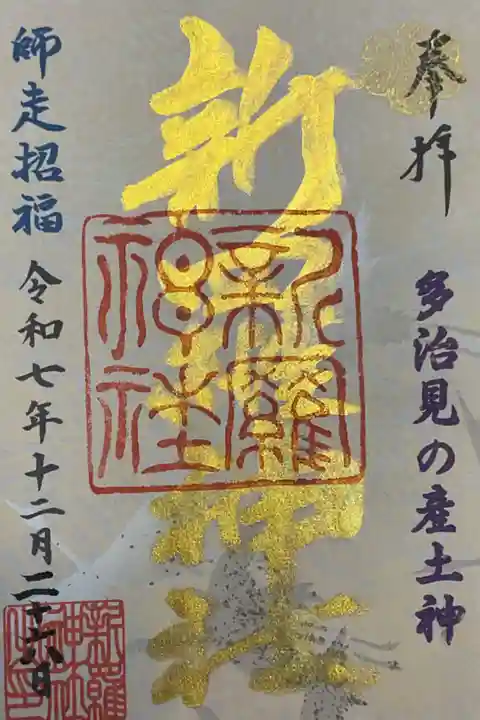 奉拝
多治見の産土神
新羅神社
新羅神社
師走招福
令和七年十二月二十六日